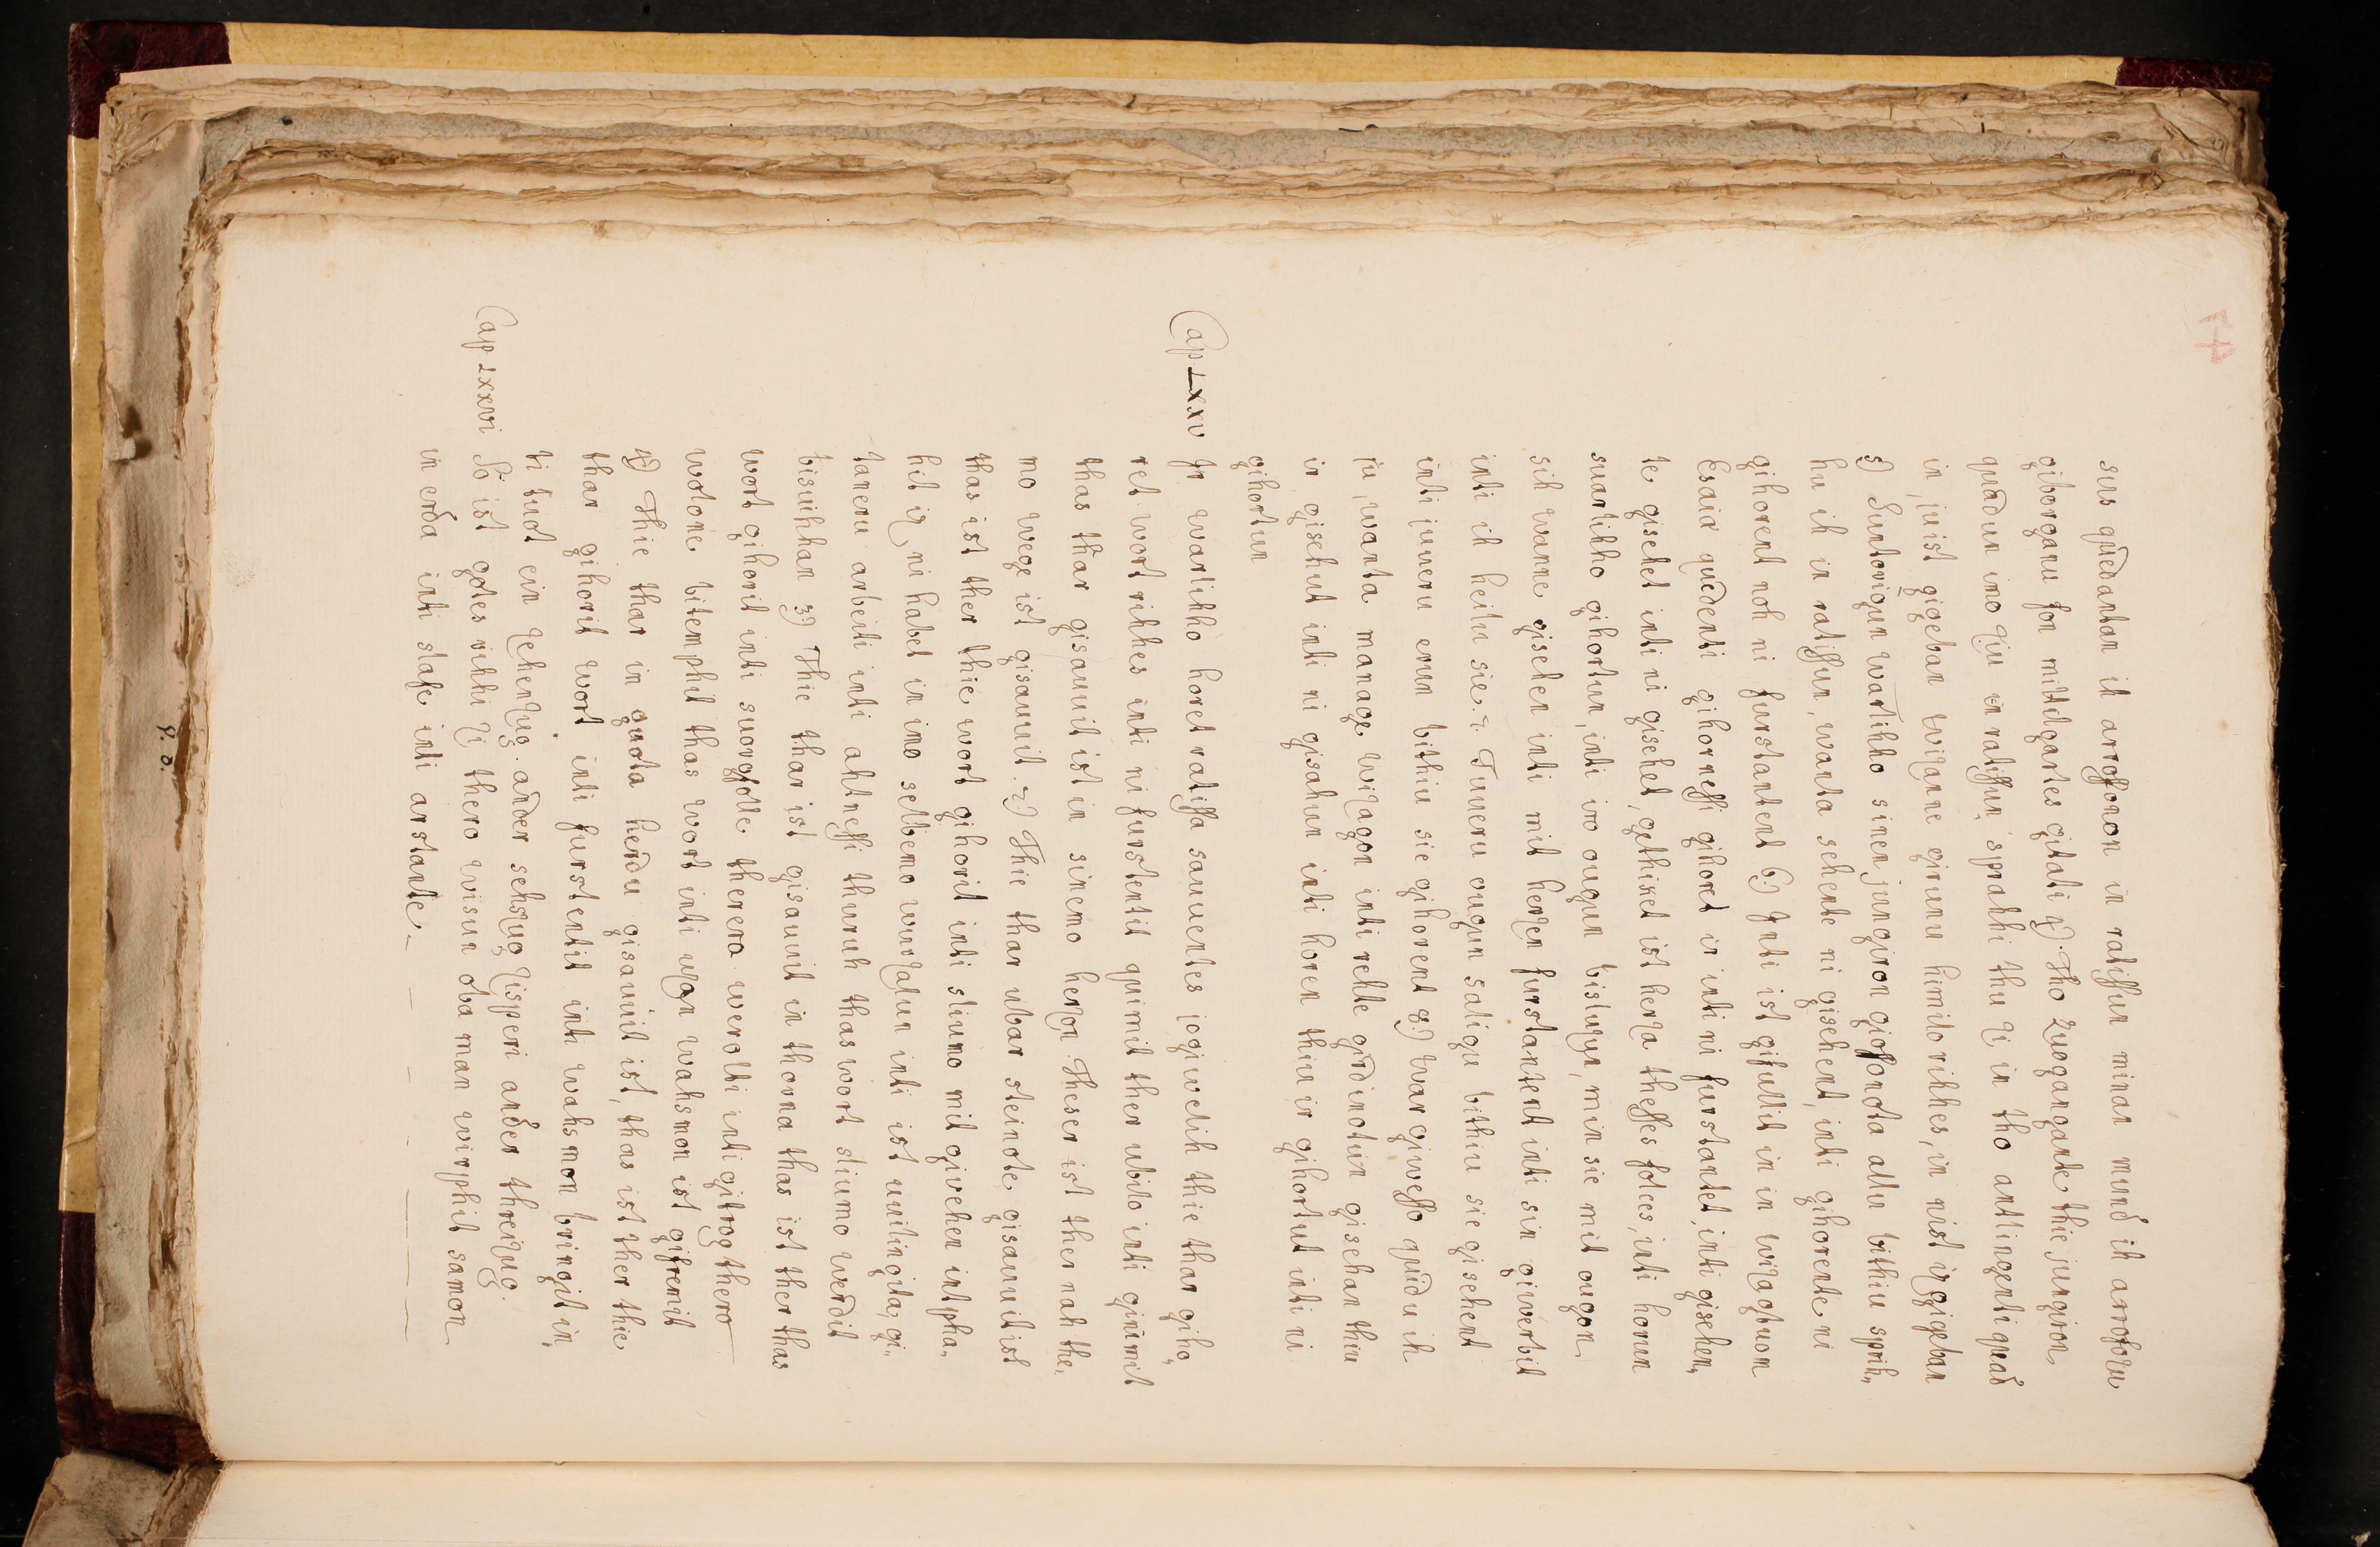 74
sus quedantan ih aroffonon in ratiffun minan mund ih arrofozu
giborganu fon mittilgartes gitati 4). Tho zuogangante thie jungiron
quadun imo ziu in ratiffun sprahhi thu zi in tho antlingenti quad
in, iu ist gigeban wizanne girunu himilo rihhes, in nist iz gigeban
5) Suntorigun warlihho sinen jungiron gioffonota allu bithiu sprih„
hu ih in ratiffun, wanta sehente ni gisehent, inti gihorente ni
gihorent noh ni furstantent 6) Inti ist gifullit in in wizagtuom
Esaia quedenti gihorneffi gihoret ir inti ni furstantet, inti gisehen„
te gisehet inti ni gisehet, gethiket ist herza theffes folces, inti horun
suarlihho gihortun, inti iro ougun bisluzun, min sie mit ougon
sih wanne gisehen inti mit herzen furstantent inti sin giwerbit
inti ih heilu sie. 7 Iuueru ougun saligu bithiu sie gisehent
inti iuueru orun bithiu sie gihorent 8.) war giweffo quidu ih
iu, wanta manage wizagon inti rehte gerdinotun gisehan thiu
ir gisehut inti ni gisahun inti horen thiu ir gihortut inti ni
gihortun
Cap LXXV Ir warlihho horet ratiffa sauuentes iogiwelih thie thar giho„
ret wort rihhes inti ni furstentit quimit ther ubilo inti ginimit
thas thar gisauuit ist in sinemo herzon. Theser ist ther nah the„
mo wege ist gisauuit. 2) Thie thar ubar steinote gisauuit ist
thas ist ther thie wort gihorit inti sliumo mit givehen intpha„
hit iz, ni habet in imo selbemo wurzalun inti ist uuilingita, gi„
taneru arbeiti inti ahtneffi thuruh thas wort sliumo werdit
bisuihhan 3) Thie thar ist gisauuit in thorna thas ist ther thas
wort gihorit inti suorgfolle therero werolti inti gitrog thero
wolono bitemphit thas wort inti uzan wahsmon ist gifremit
4) Thie thar in guota herdu gisauuit ist, thas ist ther thie
thar gihorit wort inti furstentit inti wahsmon bringit in,
ti tuot ein zehenzug. ander sehszug zisperi ander threizug.
Cap LXXVI So ist gotes rihhi zi thero wisun oba man wirphit samon
in erda inti slafe inti arstante.